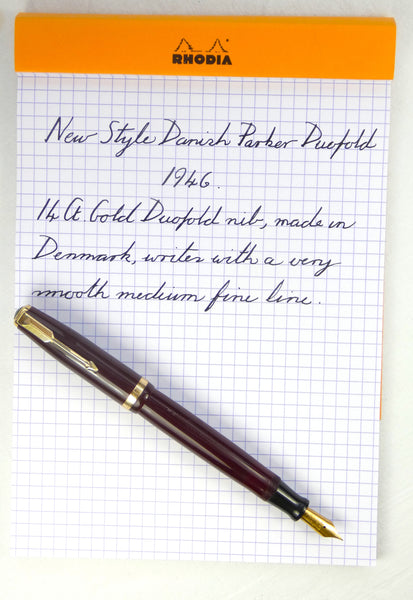 RHODIA
New Style Danish Parker Duofold
1946.
14 Ct. Gold Duofold nib, made in
Denmark, writes with a very
smooth medium fine line.